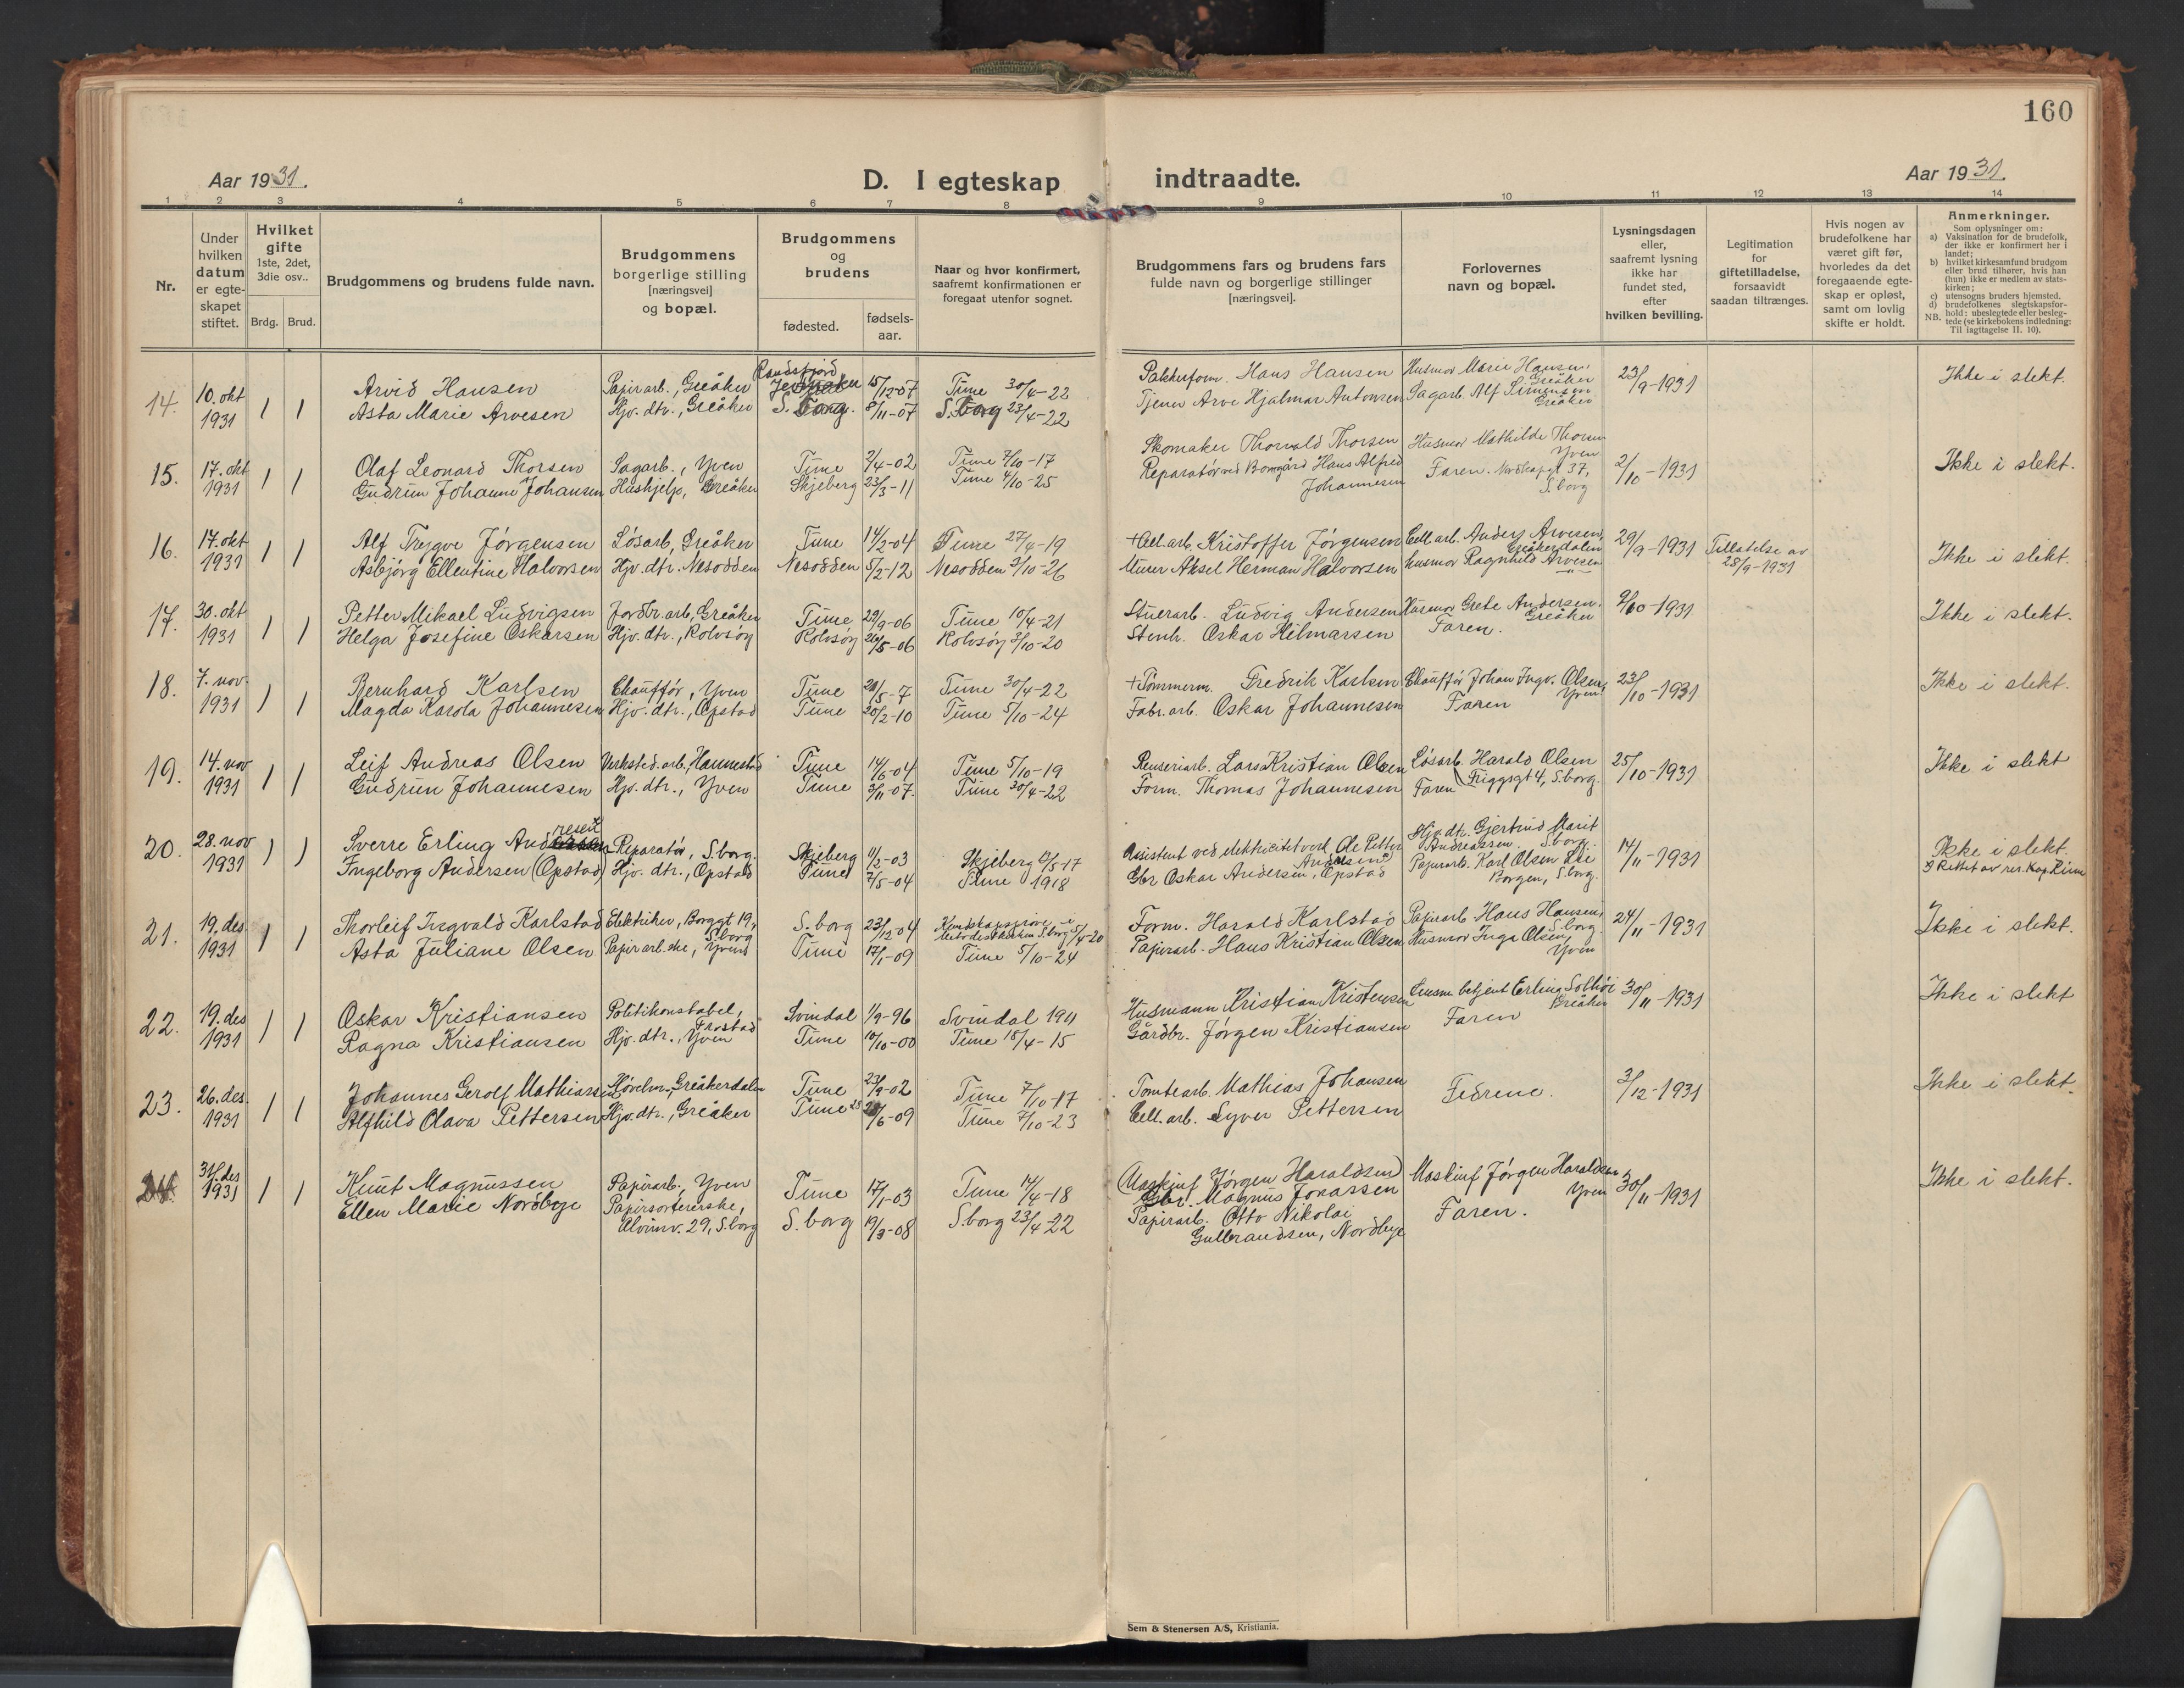 160
Aar 1931.
D. I egteskap indtraadte.
Aar 1931.
1 2 3 4 5 6 7 8 9 10 11 12 13 14
Nr.
Under hvilken datum er egte-skapet stiftet.
Hvilket gifte 1ste, 2det, 3die osv..
Brdg. Brud.
Brudgommens og brudens fulde navn.
Brudgommens borgerlige stilling [næringsvei] og bopæl.
Brudgommens og brudens
fødested. fødsels-aar.
Naar og hvor konfirmert, saafremt konfirmationen er foregaat utenfor sognet.
Brudgommens fars og brudens fars fulde navn og borgerlige stillinger [næringsvei].
Forlovernes navn og bopæl.
Lysningsdagen eller, saafremt lysning ikke har fundet sted, efter hvilken bevilling.
Legitimation for giftetilladelse, forsaavidt saadan tiltrænges.
Hvis nogen av brudefolkene har været gift før, hvorledes da det foregaaende egte-skap er opløst, samt om lovlig skifte er holdt.
Anmerkninger.
Som oplysninger om:
a) Vaksination for de brudefolk, der ikke er konfirmert her i landet;
b) hvilket kirkesamfund brudgom eller brud tilhører, hvis han (hun) ikke er medlem av stats-kirken;
c) utensogns bruders hjemsted.
d) brudefolkenes slegtskapsfor-hold: ubeslegtede eller besleg-tede (se kirkebokens indledning: NB. Til iagttagelse II. 10).
14. 10. okt 1931 1 1
Arvid Hansen Papirarb., Greåker Randsfjord 15/12-07 Tune 30/4-22 Hans Hansen Husmor Marie Hansen, Greåker 23/9-1931 Ikke i slekt.
Asta Marie Arvesen Hjv. dtr., Greåker S. borg. 8/11-07 S. borg 23/4-22 Tjener Arve Hjalmar Antonsen Sagarb. Alf Simensen Greåker
15. 17. okt 1931 1 1
Olaf Leonard Thorsen Sagarb., Yven Tune 2/4-02 Tune 7/10-17 Skomaker Thorvald Thorsen Husmor Mathilde Thorsen Yven 2/10-1931 Ikke i slekt.
Gudrun Johanne Johansen Hushjelp, Greåker Skjeberg 23/3-11 Tune 4/10-25 Reparatør ved Borregård Hans Alfred Johannesen Faren. 37, S.borg
16. 17. okt 1931 1 1
Alf Trygve Jörgensen Lösarb, Greåker Tune 14/2-04 Tune 27/4-19 + Cell. arb. Kristoffer Jörgensen Cell. arb. Anders Arvesen, Greåkerdalen 29/9-1931 Tillatelse av 28/9-1931 Ikke i slekt.
Asbjörg Ellentine Halvorsen Hjv. dtr. Nesodden Nesodden 5/2-12 Nesodden 3/10-26 Murer Aksel Herman Halvorsen Husmor Ragnhild Arvesen
17. 30. okt 1931 1 1
Petter Mikael Ludvigsen Jordbr. arb, Greåker Tune 29/9-06 Tune 10/4-21 Stuerarb. Ludvig Andersen Husmor Grete Andersen. Greåker 9/10-1931 Ikke i slekt.
Helga Josefine Oskarsen Hjv. dtr., Rolvsøy Rolvsöy 26/5-06 Rolvsöy 3/10-20 Stenh. Oskar Hilmarsen Faren.
18. 7. nov. 1931 1 1
Bernhard Karlsen Chauffør, Yven Tune 21/5-7 Tune 30/4-22 + Tømmerm. Fredrik Karlsen Chauffør Johan Ingv. Olsen, Yven 23/10-1931 Ikke i slekt.
Magda Karola Johannesen Hjv. dtr., Opstad Tune 20/2-10 Tune 5/10-24 Fabr. arb. Oskar Johannesen Faren
19. 14. nov 1931 1 1
Leif Andreas Olsen Verksted.arb., Hannestad Tune 14/6-04 Tune 5/10-19 Renseriarb. Lars Kristian Olsen Løsarb. Harald Olsen Friggsgt 4, S.borg. 25/10-1931 Ikke i slekt
Gudrun Johannesen Hjv. dtr., Yven Tune 3/11-07. Tune 30/4-22 Form. Thomas Johannesen Faren
20. 28. nov 1931 1 1
Sverre Erling Andresen Reparatør, S.borg. Skjeberg 11/2-03 Skjeberg 13/5-17 Assistent ved elektricitetverk Ole Petter Andresen Hjv. dtr. Gjertrud Marit Andreassen. S.borg. 14/11-1931 Ikke i slekt.
Ingeborg Andersen (Opstad) Hjv. dtr., Opstad Tune 7/5-04 Tune 1918 Gbr Oskar Andersen, Opstad Papirarb. Karl Olsen Lie Borgen, S.borg. Rettet av res. kap.
21. 19. des. 1931 1 1
Thorleif Ingvald Karlstad Elektriker, Borggt 19, S.borg S. borg 23/12-04 5/4-20 Form. Harald Karlstad Papirarb. Hans Hansen, S.borg. 24/11-1931 Ikke i slekt.
Asta Juliane Olsen Papirarb.ske, Yven Tune 17/1-09 Tune 5/10-24 Papirarb. Hans Kristian Olsen Husmor Inga Olsen, Yven
22. 19. des 1931 1 1
Oskar Kristiansen Politikonstabel, Svindal 1/9-96 Svindal 1911 Husmann Kristian Kristensen Lensm. betjent Erling Solhöi Greåker 30/11-1931 Ikke i slekt
Ragna Kristiansen Hjv. dtr., Yven Tune 10/10-00 Tune 18/4-15 Gårdbr. Jörgen Kristiansen Faren
23. 26. des. 1931 1 1
Johannes Gerolf Mathiassen Høvelm., Greåkerdalen Tune 23/9-02 Tune 7/10-17 Tomtearb. Mathias Johansen Fedrene. 3/12-1931 Ikke i slekt.
Alfhild Olava Pettersen Hjv. dtr., Greåker Tune 28/6-09 Tune 7/10-23 Cell. arb. Syver Pettersen
24. 31. des 1931 1 1
Knut Magnussen Papirarb., Yven Tune 17/1-03 Tune 14/4-18 (Maskinf Jörgen Haraldsen) Gbr. Magnus Jonassen Maskinf Jörgen Haraldsen Yven 30/11-1931 Ikke i slekt.
Ellen Marie Nordbye Papirsortererske, Alvimv. 29, S.borg S. borg 19/3-08 S.borg 23/4-22 Papirarb. Otto Nikolai Gulbrandsen, Nordbye Faren.
Sem & Stenersen A/S, Kristiania.